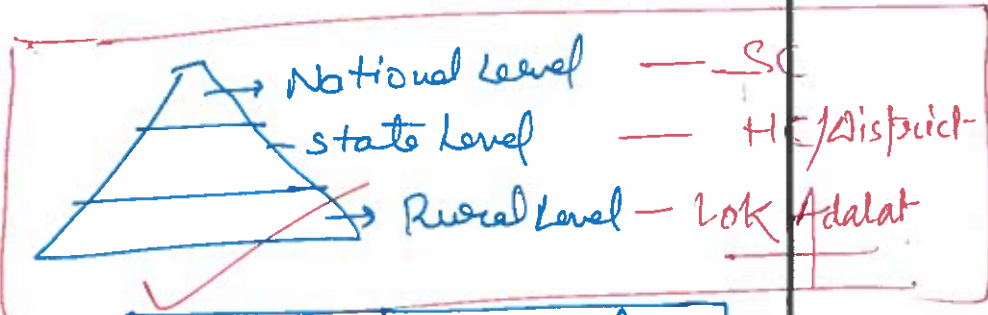 National Level — SC
State Level — HC/District
Rural Level — Lok Adalat